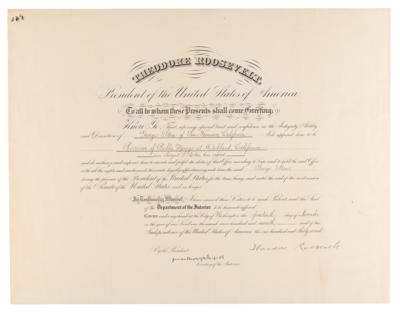 THEODORE ROOSEVELT,
President of the United States of America
To all to whom these Presents shall come, Greeting:
Know Ye, That, reposing special trust and confidence in the Integrity, Ability
and Discretion of George Stone of San Francisco, California I do appoint him to be
Receiver of Public Moneys at Oakland, California
and do authorize and empower him to execute and fulfil the duties of that Office according to law, and to hold the said Office
with all the rights and emoluments thereunto legally appertaining unto him the said George Stone
during the pleasure of the President of the United States for the time being, and until the end of the next session
of the Senate of the United States and no longer.
In testimony whereof, I have caused these Letters to be made Patent and the Seal
of the Department of the Interior to be hereunto affixed.
Given under my hand at the City of Washington, the day of
in the year of our Lord one thousand nine hundred and and of the
Independence of the United States of America the one hundred and thirty
By the President:
Theodore Roosevelt
Secretary of the Interior.